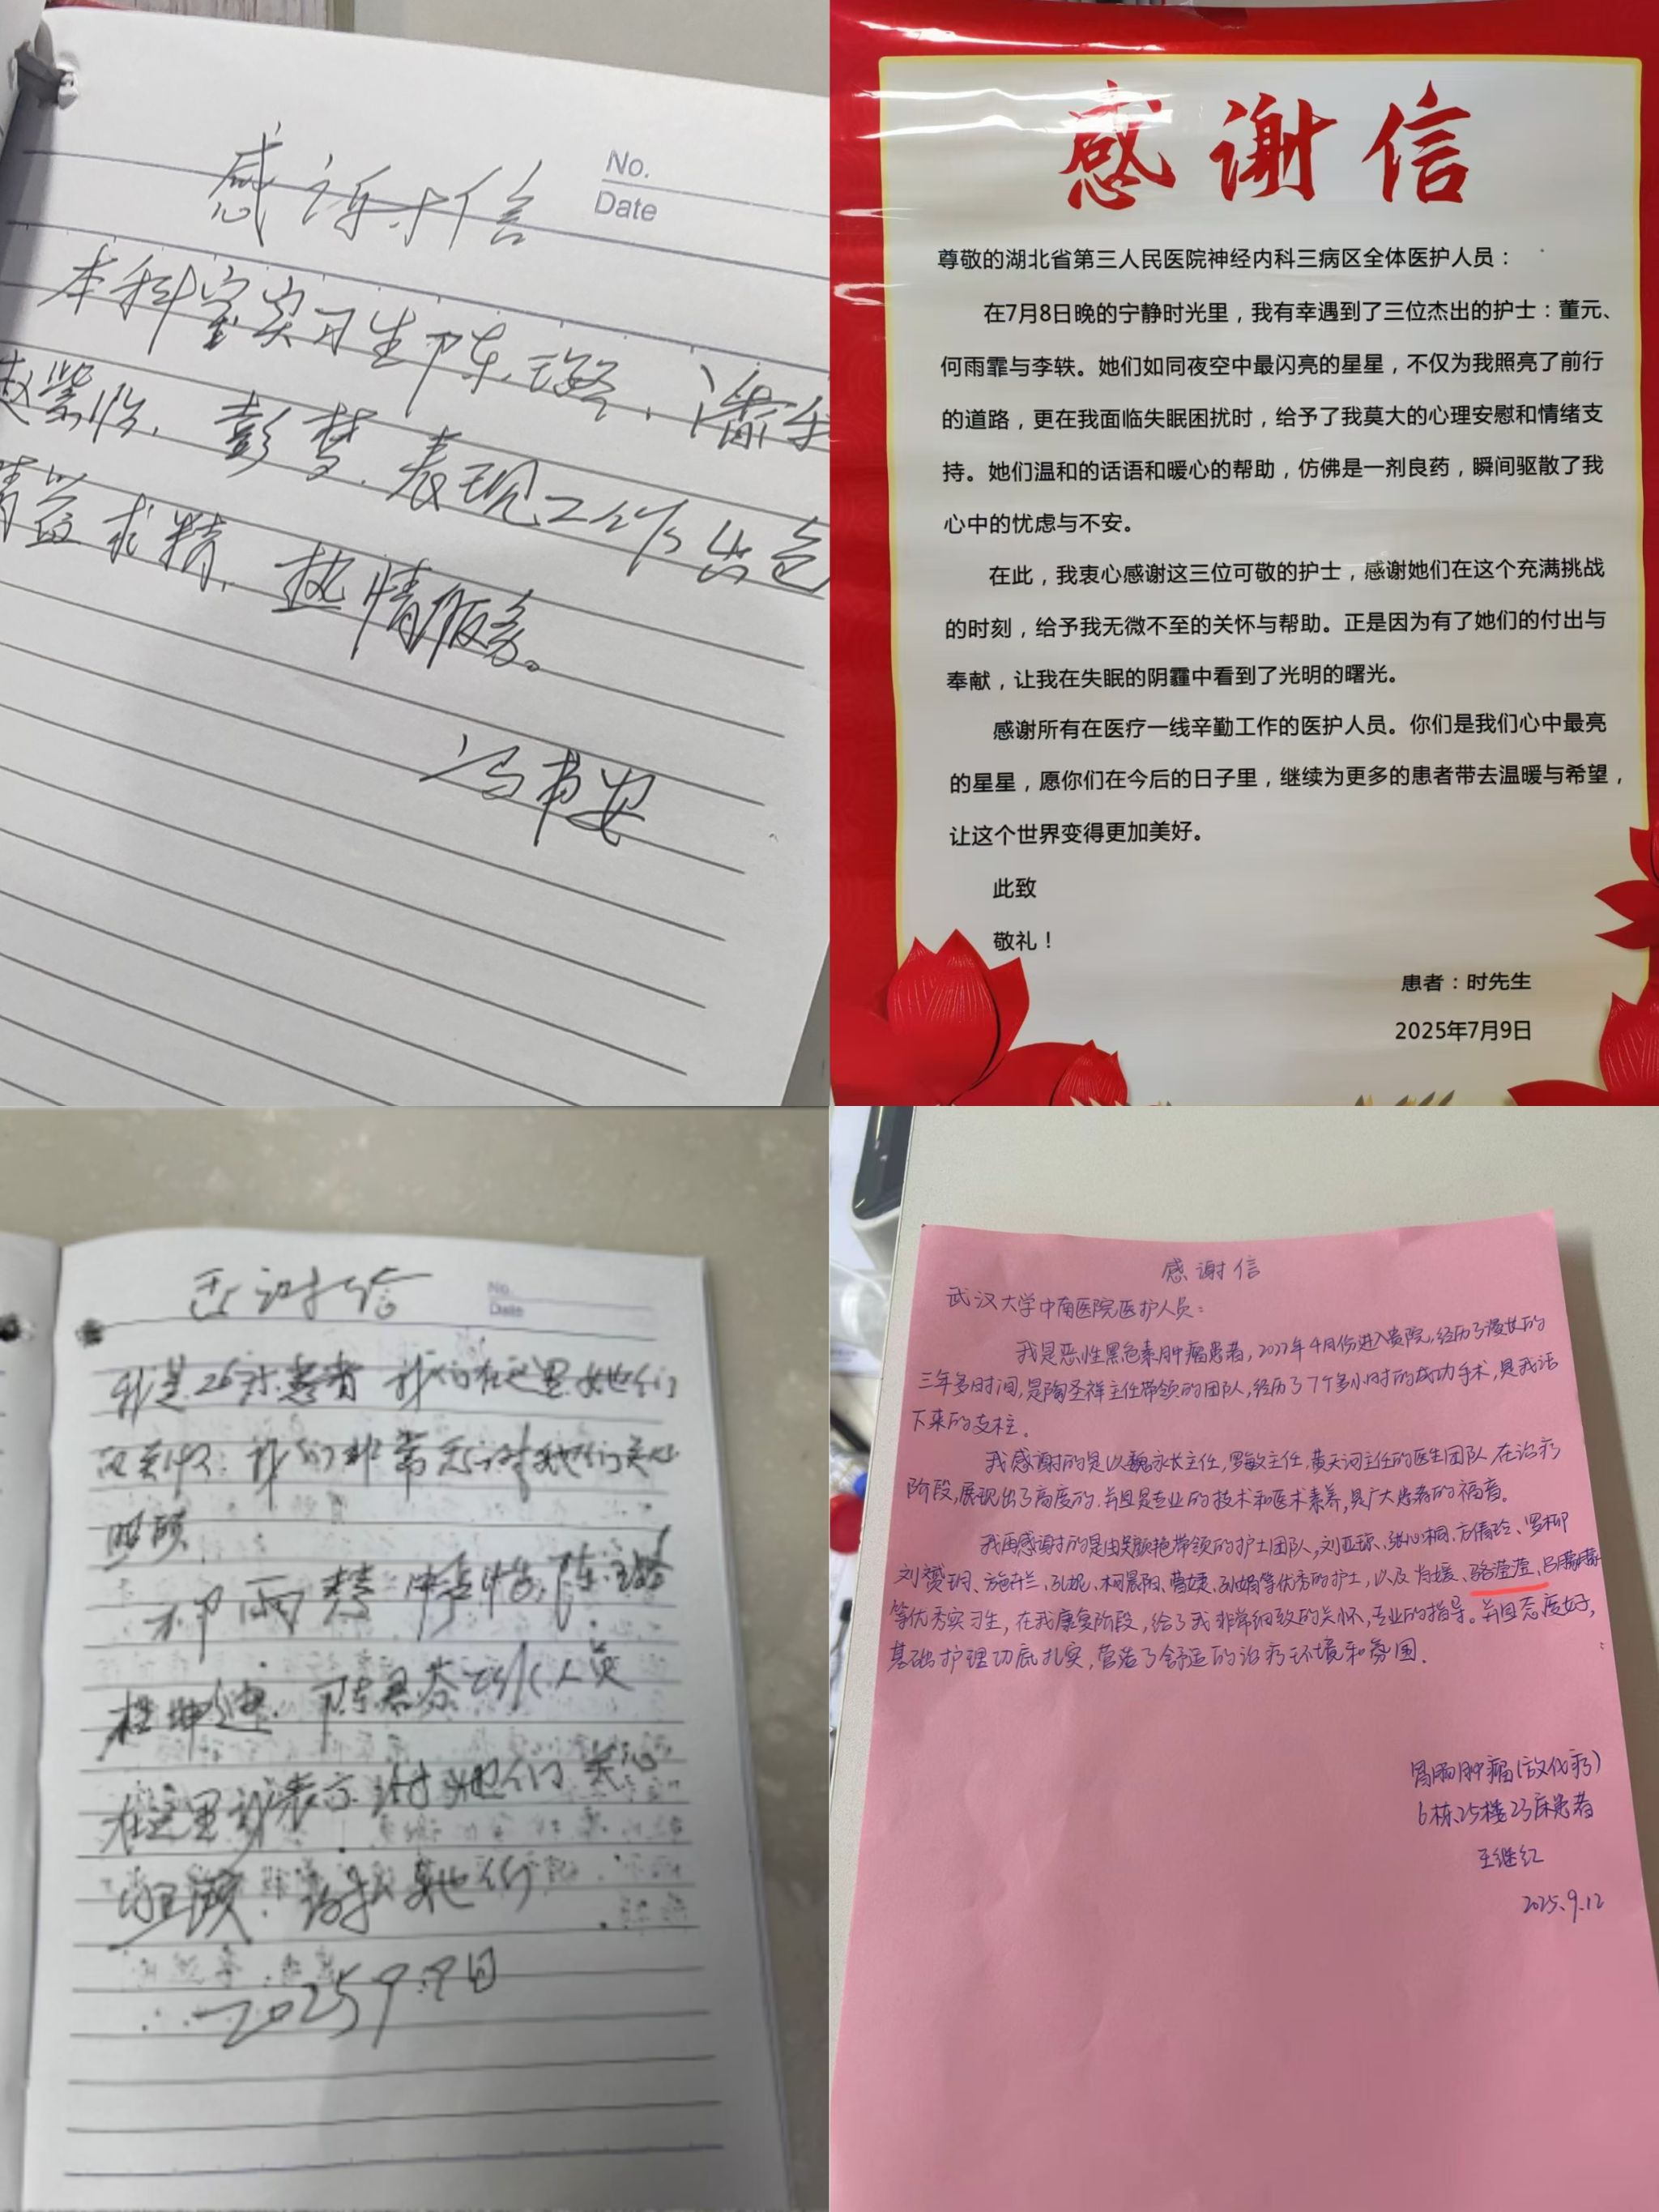 感谢信
No.
Date
本科室实习生陈璐、潘
赵紫怡、彭梦、表现工作出色
精益求精、热情服务。
感谢信
尊敬的湖北省第三人民医院神经内科三病区全体医护人员：
在7月8日晚的宁静时光里，我有幸遇到了三位杰出的护士：董元、
何雨霏与李轶。她们如同夜空中最闪亮的星星，不仅为我照亮了前行
的道路，更在我面临失眠困扰时，给予了我莫大的心理安慰和情绪支
持。她们温和的话语和暖心的帮助，仿佛是一剂良药，瞬间驱散了我
心中的忧虑与不安。
在此，我衷心感谢这三位可敬的护士，感谢她们在这个充满挑战
的时刻，给予我无微不至的关怀与帮助。正是因为有了她们的付出与
奉献，让我在失眠的阴霾中看到了光明的曙光。
感谢所有在医疗一线辛勤工作的医护人员。你们是我们心中最亮
的星星，愿你们在今后的日子里，继续为更多的患者带去温暖与希望，
让这个世界变得更加美好。
此致
敬礼！
患者：时先生
2025年7月9日
感谢信
No.
Date
我是26床患者 我们在这里她们
我们非常感谢她们关心
照顾
柳雨慧 陈璐
桂坤 陈君芬 人员
在这里我表示对她们关心
照顾. 谢谢她们
2025 9.9日
感谢信
武汉大学中南医院医护人员：
我是恶性黑色素肿瘤患者，2022年4月份进入贵院，经历了漫长的
三年多时间，是陶圣祥主任带领的团队，经历了7个多小时的成功手术，是我活
下来的支柱。
我感谢的是以魏永长主任，罗敏主任，黄天河主任的医生团队，在治疗
阶段，展现出了高度的、并且是专业的技术和医术素养，是广大患者的福音。
我再感谢的是由吴颖艳带领的护士团队，刘亚琼、张心桐、方倩玲、罗柳
刘赟玥、施卉兰、孔妮、柯晨阳、曹婕、孙娟等优秀的护士，以及肖媛、骆滢滢、
等优秀实习生，在我康复阶段，给了我非常细致的关怀，专业的指导。并且态度好，
基础护理功底扎实，营造了舒适的治疗环境和氛围.
胃肠肿瘤(放化疗)
6栋25楼23床患者
王继红
2025.9.12